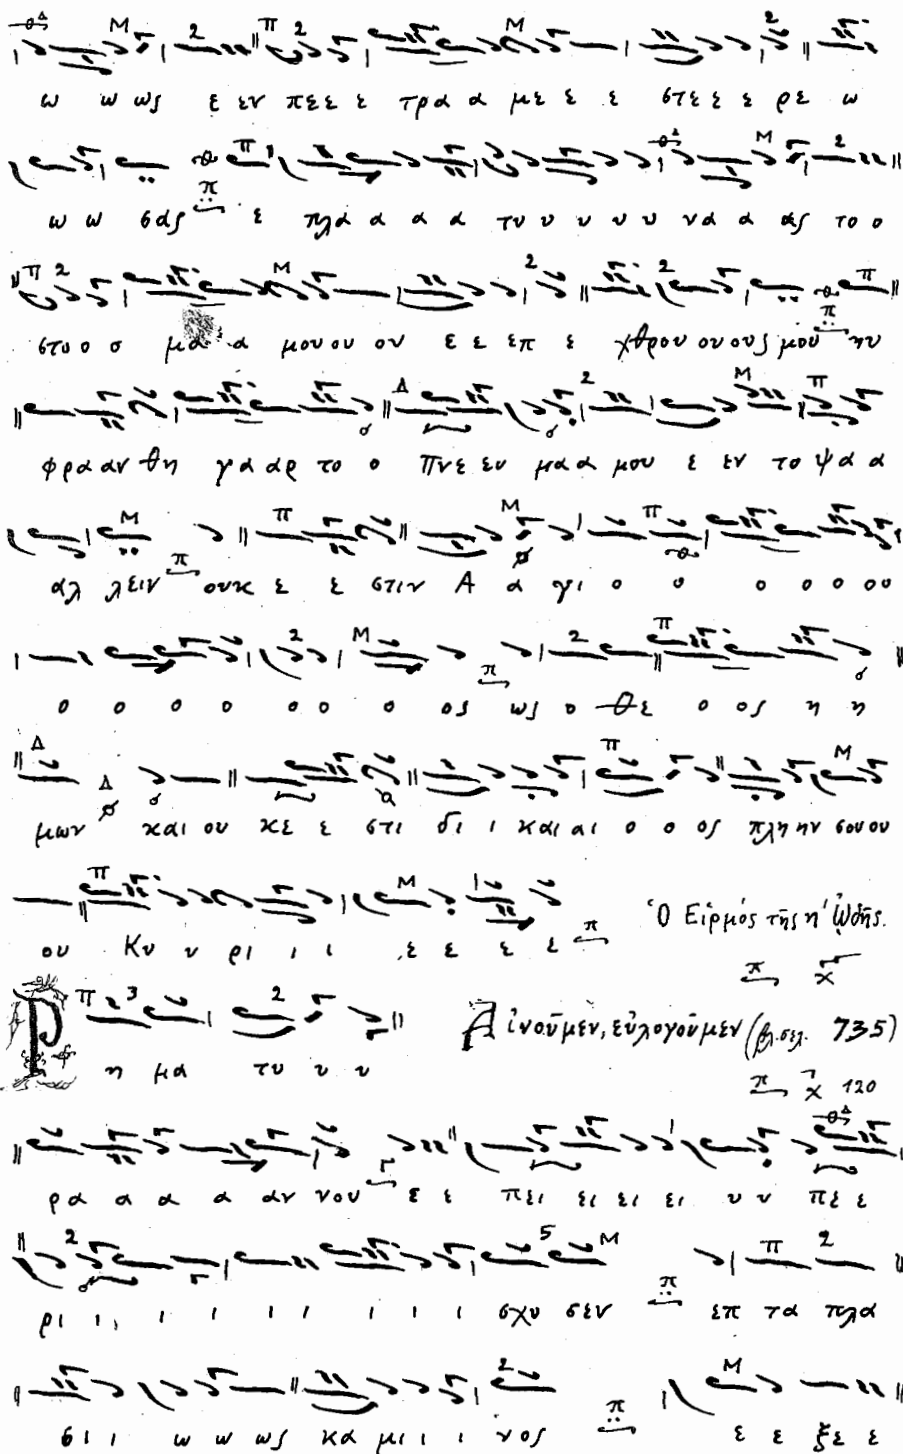 ω ω ως ε εν πεε ε τρα α με ε ε ε στε ε ε ρε ω
ω ω σας ε πλα α α α τυ υ υ υ υ να α ας το ο
στο ο σ μα α α μου ου ον ε ε επ ε χθρου ου ους μου ηυ
φρα αν θη γα αρ το ο Πνε ευ μα α μου ε εν το ψα α
αλ λειν ουκ ε ε στιν Α α γι ο ο ο ο ο ου
ο ο ο ο ο ο ο ος ως ο Θε ο ος η η
μων και ου κε ε στι δι ι και αι ο ο ος πλη ην σου ου
ου Κυ υ ρι ι ι ε ε ε ε Ὁ Εἱρμός τῆς η' ᾠδῆς.
Ρη μα τυ υ υ Αἰνοῦμεν, εὐλογοῦμεν (βλ. σελ. 735)
120
ρα α α α αν νου ε ε πει ει ει ει υν πε ε
ρι ι ι ι ι ι ι ι ι ι σχυ σεν επ τα πλα
σι ι ω ω ως κα μι ι ι νος ε ε ξε ε